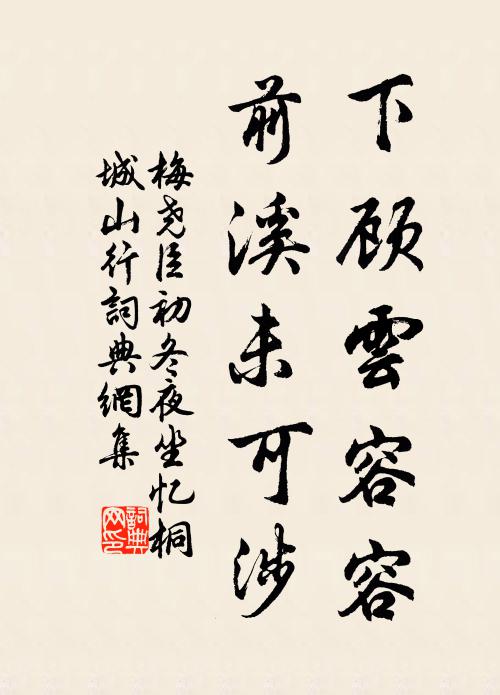 下顾雲容容
前溪未可涉
梅尧臣初冬夜坐忆桐
城山行詞典網集
詞典
网印